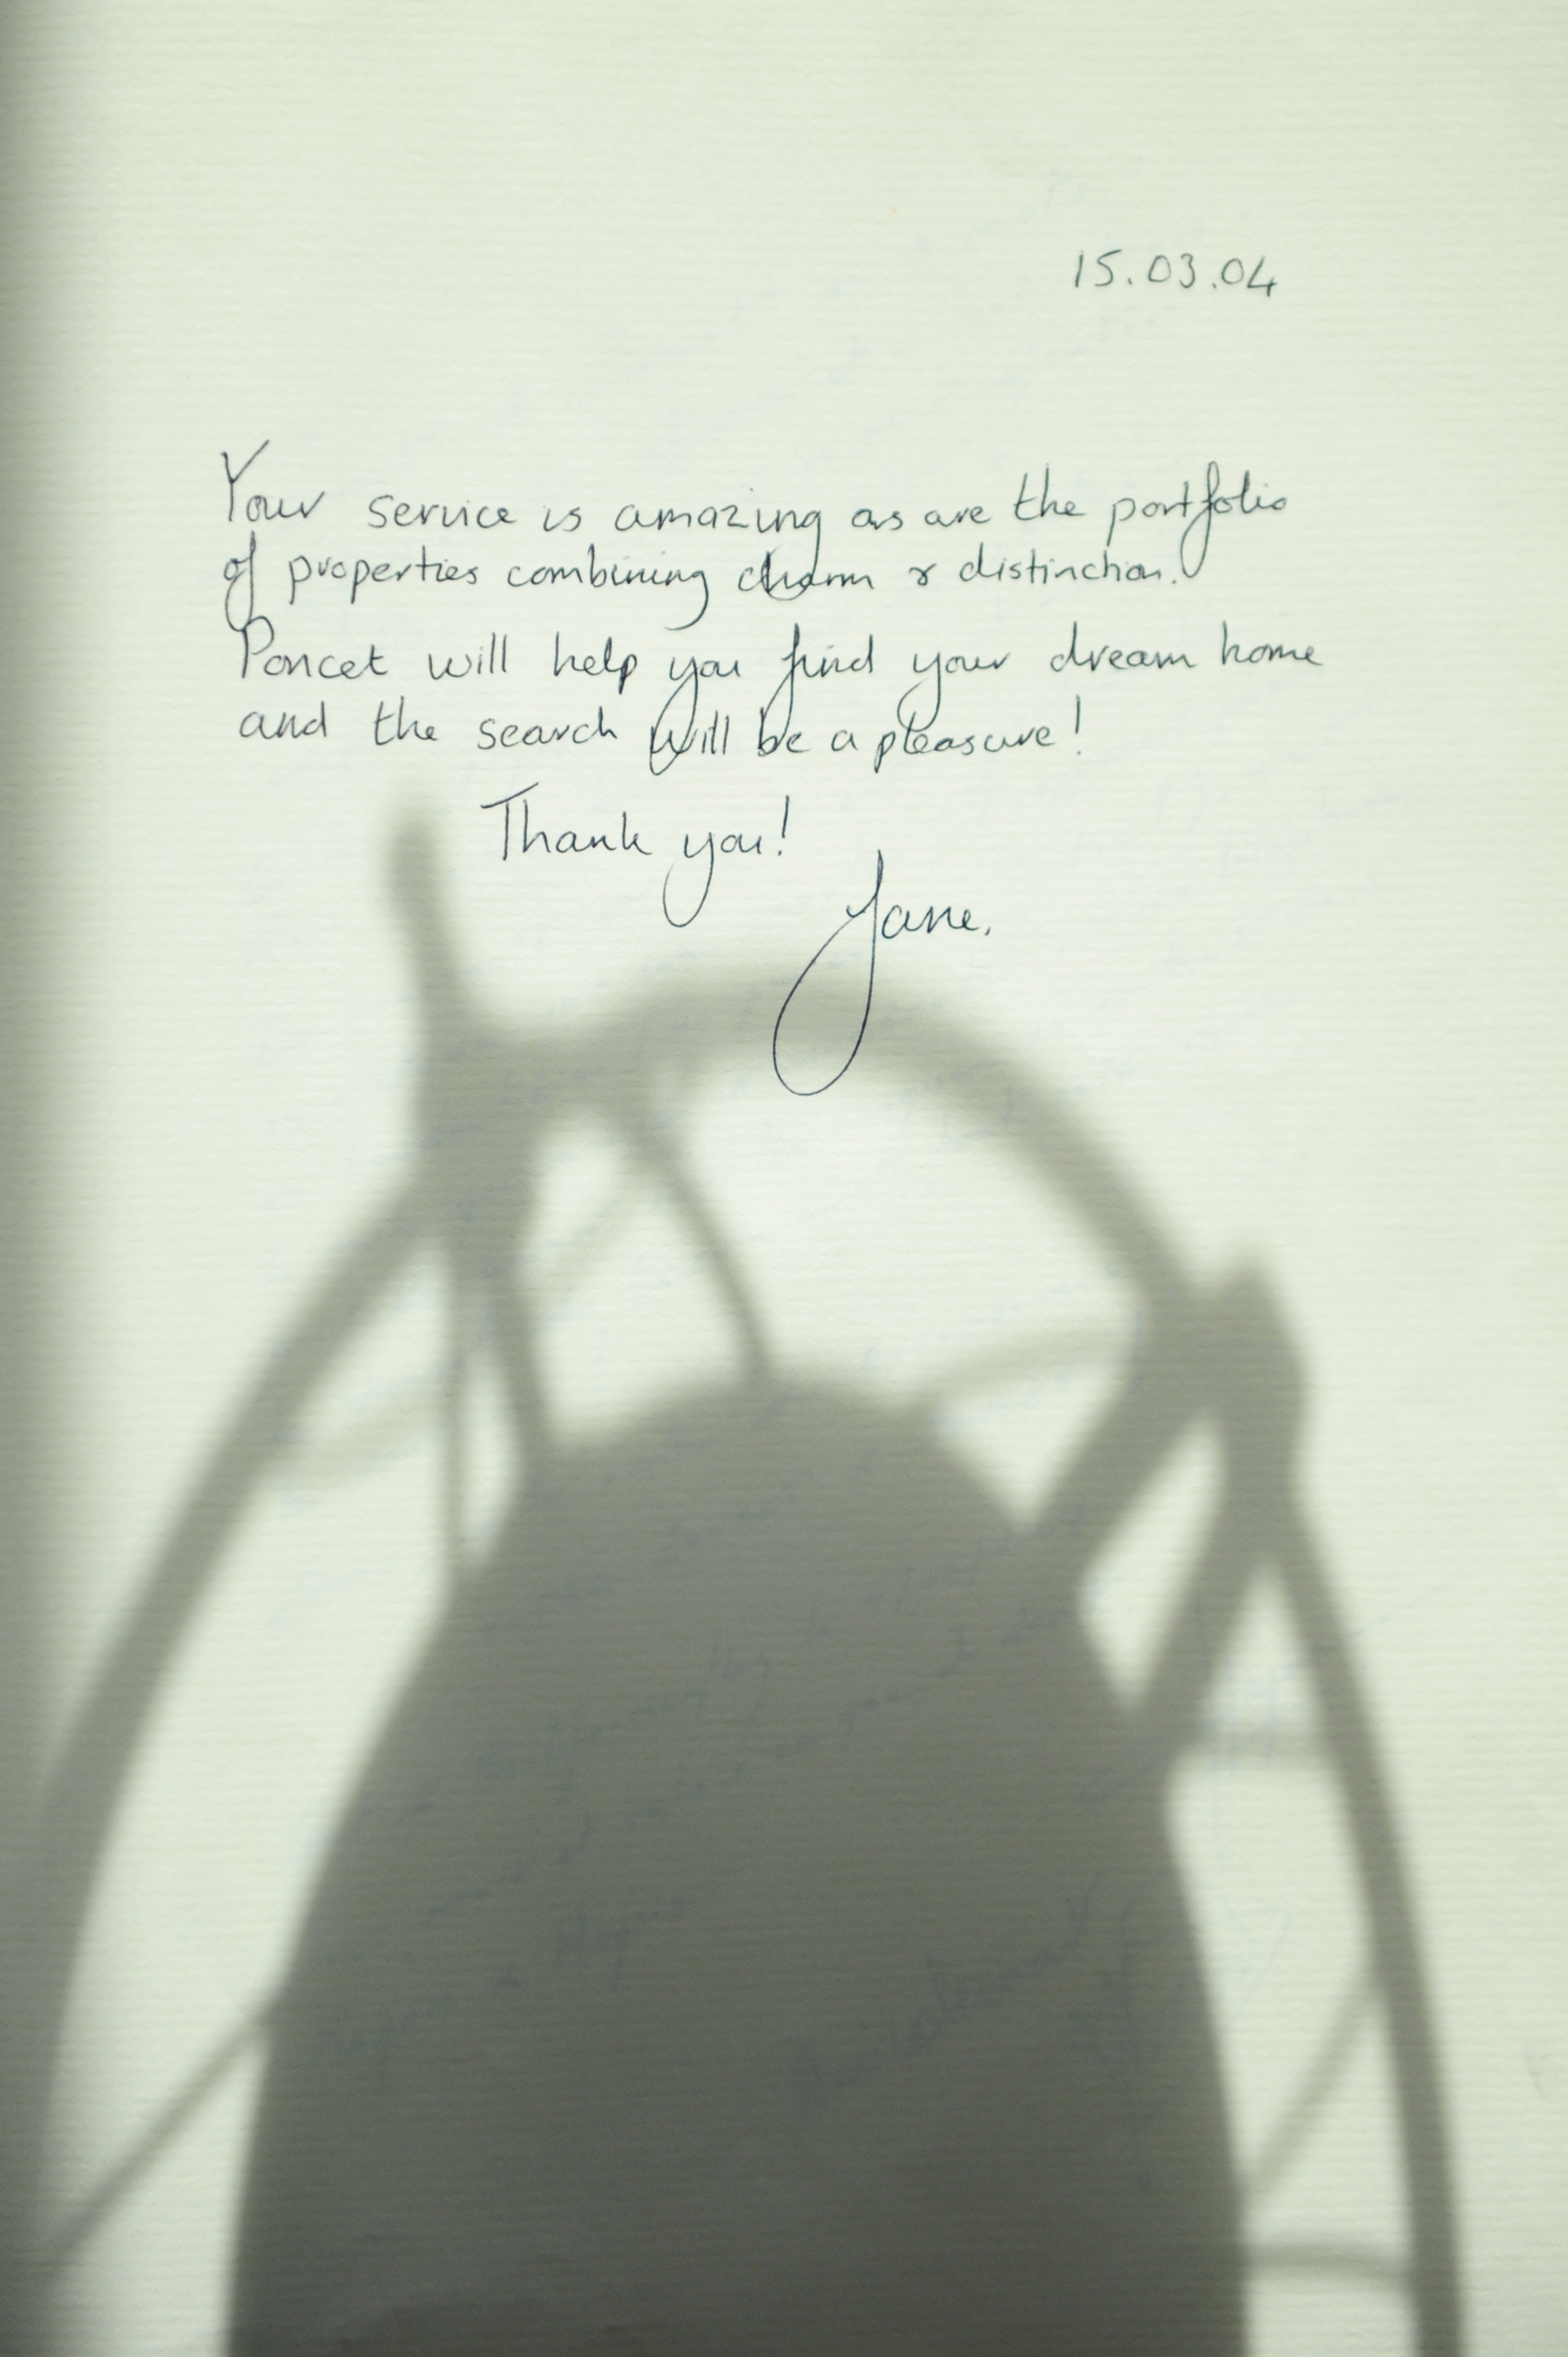 15.03.04
Your service is amazing as are the portfolio
of properties combining charm & distinction.
Poncet will help you find your dream home
and the search will be a pleasure!
Thank you!
Jane.